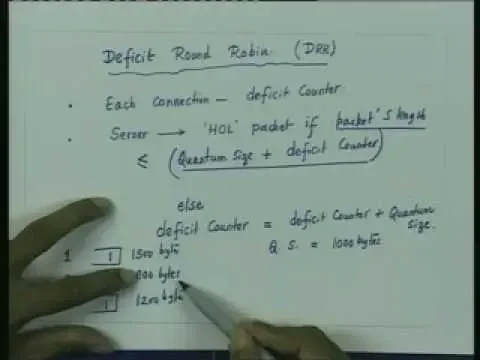 Deficit Round Robin (DRR)
• Each Connection – deficit Counter
• Server → 'HOL' packet if packet's length
≤ (Quantum Size + deficit Counter)
else
deficit Counter = deficit Counter + Quantum Size.
Q S. = 1000 bytes
1 1 1500 bytes
800 bytes
1 1200 bytes